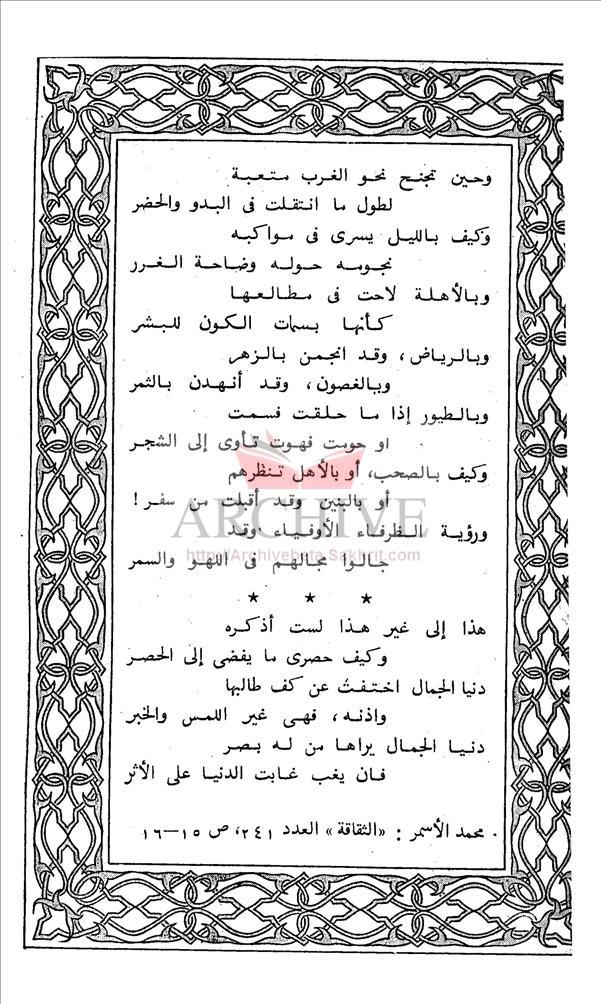 وحين تجنح نحو الغرب متعبة
لطول ما انتقلت فى البدو والحضر
وكيف بالليل يسرى فى مواكبه
نجومه حوله وضاحة الغرر
وبالأهلة لاحت فى مطالعها
كأنها بسمات الكون للبشر
وبالرياض، وقد انجمن بالزهر
وبالغصون، وقد أنهدن بالثمر
وبالطيور إذا ما حلقت فسمت
او حومت فهوت تأوى إلى الشجر
وكيف بالصحب، أو بالأهل تنظرهم
أو بالبنين وقد أقبلت من سفر !
ARCHIVE
ورؤية الظرفاء الأوفياء وقد
http://Archivebeta.Sakhrit.com
جالوا مجالهم فى اللهو والسمر
* * *
هذا إلى غير هذا لست أذكره
وكيف حصرى ما يفضى إلى الحصر
دنيا الجمال اختفتْ عن كف طالبها
واذنه، فهى غير اللمس والخبر
دنيا الجمال يراها من له بصر
فان يغب غابت الدنيا على الأثر
محمد الأسمر : «الثقافة» العدد ٢٤١، ص ١٥—١٦ .